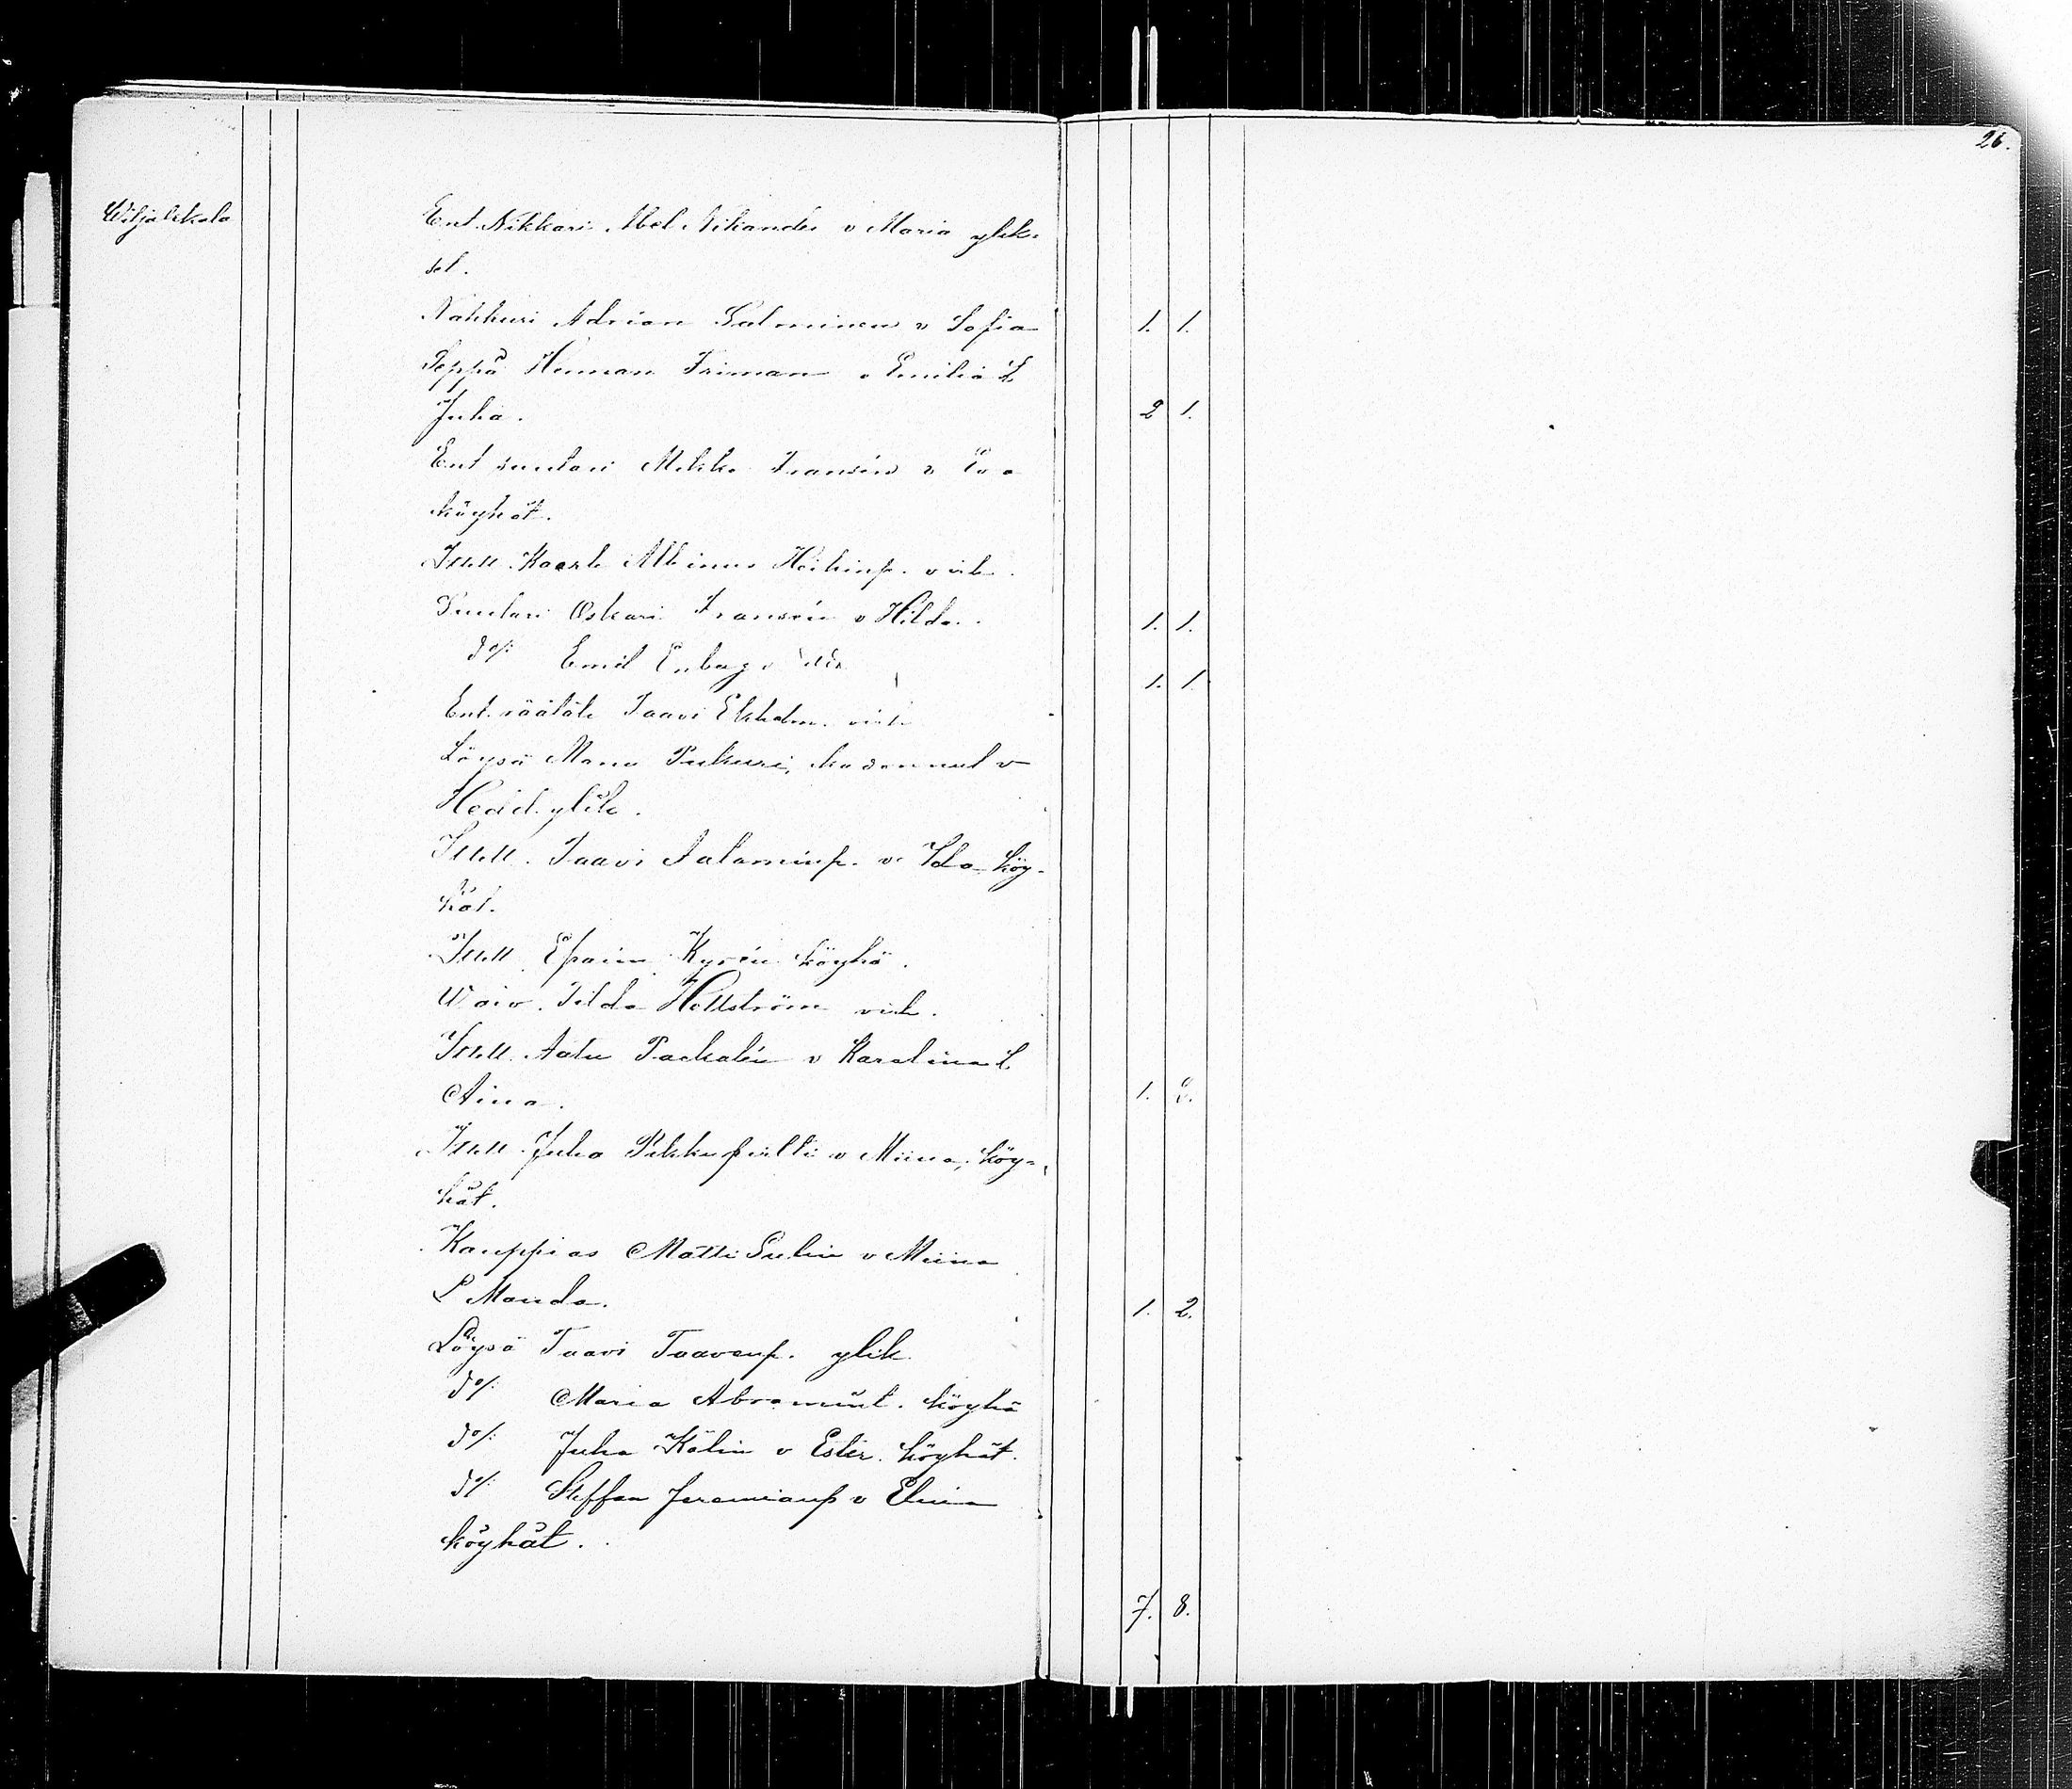 26.
Wiljakkala
Ent. Nikkari Abel Nikander v Maria ylik.
set.
Nahkuri Adrian Salminen v Sofia 1. 1.
Seppä Herman Friman v Emilia L
Juha. 2 1.
Ent suutari Mikko Fransén v Eva
köyhät.
Itsell. Kaarle Albinus Heikinp. v vih.
Suutari Oskari Fransén v Hilda. 1. 1.
do/: Emil Enberg v 1. 1.
Ent. räätäli Taavi Ekholm.
Löysä Manu Pukuri, v
Hedd. ylik.
Itsell. Taavi Salominp. v Ida köy-
hät.
Itsell. Efraim Kyrén köyhä.
Waiv. Tilda Hellström
Itsell. Aatu Packalén v Karolina L
Aina. 1. 2.
Itsell. Juha Pikkupirtti v Miina, köy-
hät.
Kauppias Matti Sulin v Miina
L Manda. 1. 2.
Löysä Taavi Taavenp. ylik.
do/: Maria Abramint. köyhä
do/: Juha Kölin v Ester. köyhät.
do/: Steffan Jeremianp v Elvina
köyhät.
7. 8.